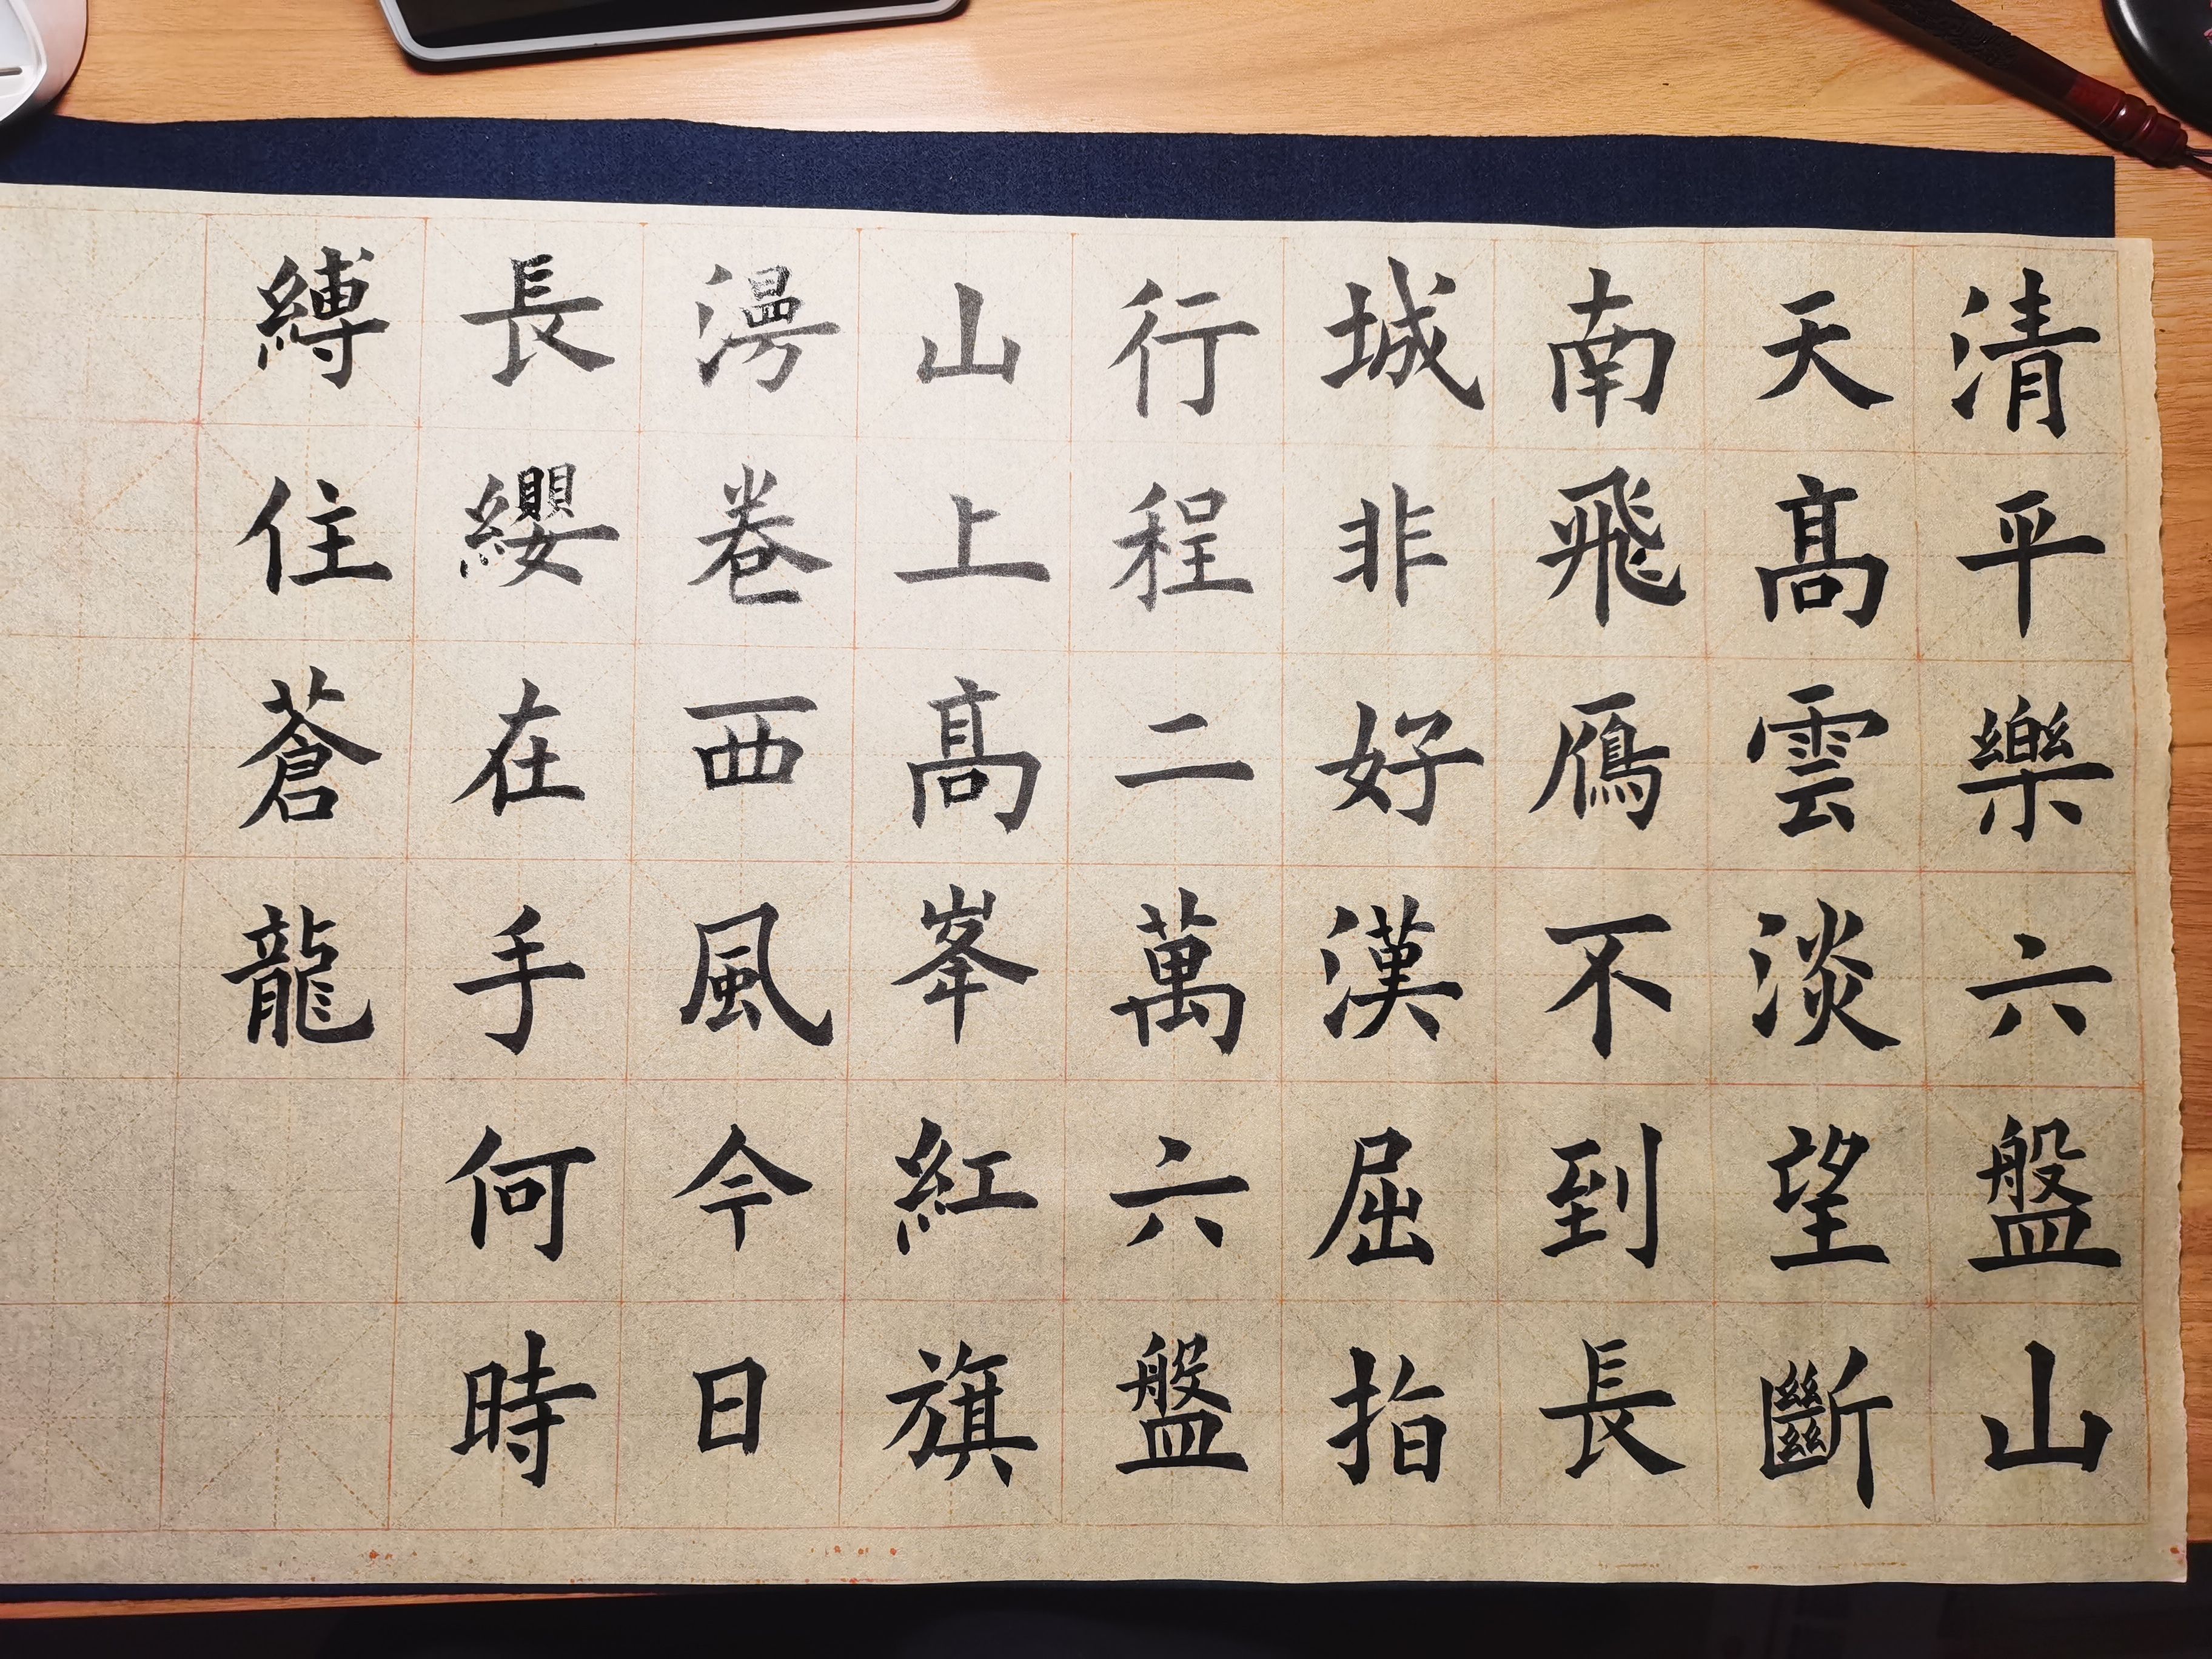 清平樂六盤山
天髙雲淡望斷
南飛鴈不到長
城非好漢屈指
行程二萬六盤
山上髙峯紅旗
漫卷西風今日
長纓在手何時
縛住蒼龍